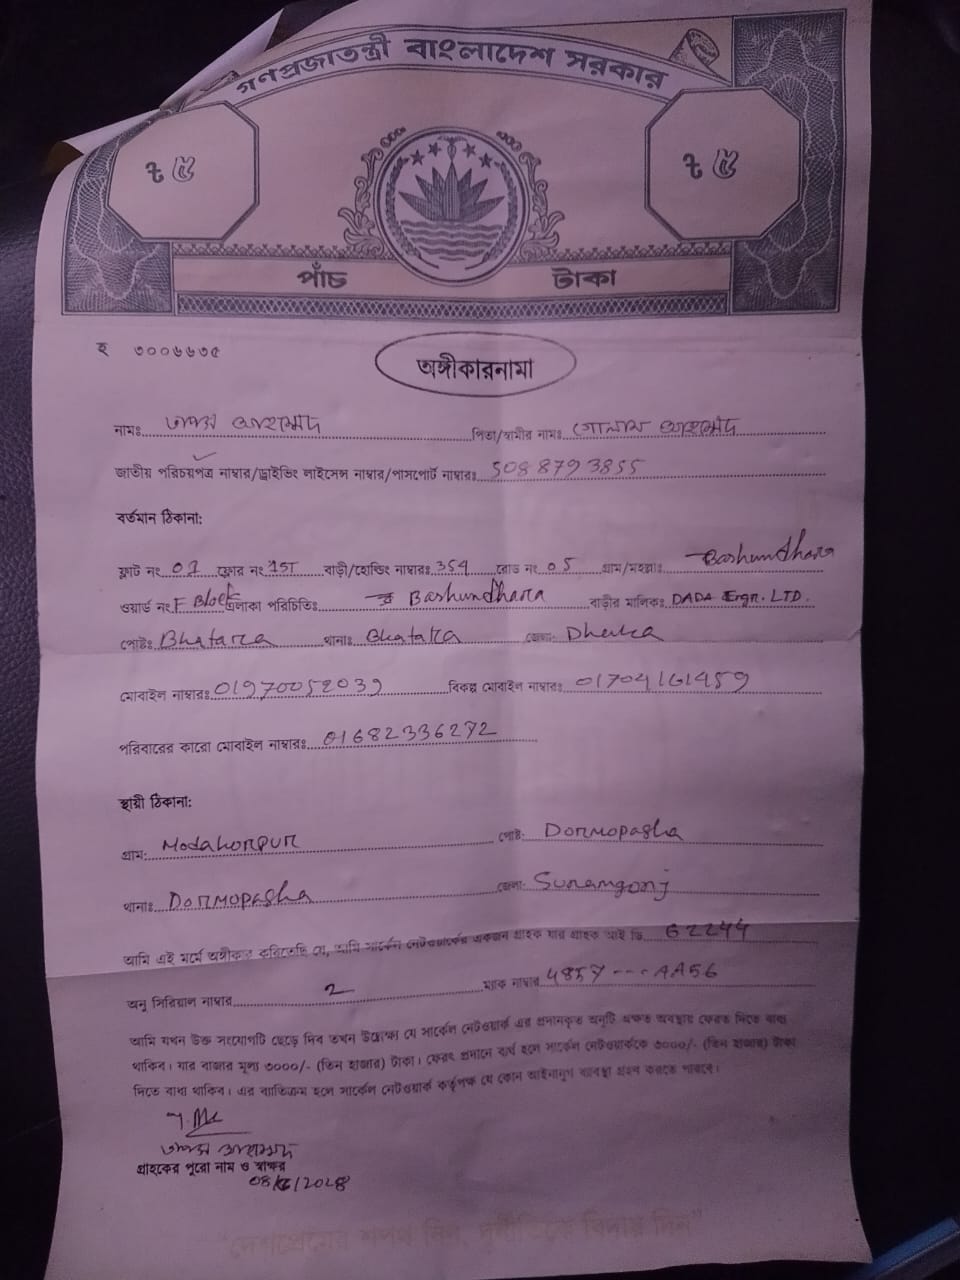 গণপ্রজাতন্ত্রী বাংলাদেশ সরকার
৳ ৫ ৳ ৫
পাঁচ টাকা
হ ৩০০৬৬৩৫
অঙ্গীকারনামা
নামঃ আহম্মেদ পিতা/স্বামীর নামঃ গোলাম আহম্মেদ
জাতীয় পরিচয়পত্র নাম্বার/ড্রাইভিং লাইসেন্স নাম্বার/পাসপোর্ট নাম্বারঃ 5088793855
বর্তমান ঠিকানা:
ফ্লাট নং 01 ফ্লোর নং 1ST বাড়ী/হোল্ডিং নাম্বারঃ 354 রোড নং 05 গ্রাম/মহল্লাঃ Bashundhara
ওয়ার্ড নং F Block এলাকা পরিচিতিঃ Bashundhara বাড়ীর মালিকঃ DADA Engr. LTD.
পোষ্টঃ Bhatara থানাঃ Bhatara জেলা: Dhaka
মোবাইল নাম্বারঃ 01970052039 বিকল্প মোবাইল নাম্বারঃ 01704161459
পরিবারের কারো মোবাইল নাম্বারঃ 01682336272
স্থায়ী ঠিকানা:
গ্রাম: Modahorpur পোষ্ট: Dormopasha
থানাঃ Dormopasha জেলা: Sunamgonj
আমি এই মর্মে অঙ্গীকার করিতেছি যে, আমি সার্কেল নেটওয়ার্কের একজন গ্রাহক যার গ্রাহক আই ডি 62244
অনু সিরিয়াল নাম্বার 2 ম্যাক নাম্বার 4857---AA56
আমি যখন উক্ত সংযোগটি ছেড়ে দিব তখন উল্লেখ্য যে সার্কেল নেটওয়ার্ক এর প্রদানকৃত অনুটি অক্ষত অবস্থায় ফেরত দিতে বাধ্য
থাকিব। যার বাজার মূল্য ৩০০০/- (তিন হাজার) টাকা। ফেরৎ প্রদানে ব্যর্থ হলে সার্কেল নেটওয়ার্ককে ৩০০০/- (তিন হাজার) টাকা
দিতে বাধ্য থাকিব। এর ব্যতিক্রম হলে সার্কেল নেটওয়ার্ক কর্তৃপক্ষ যে কোন আইনানুগ ব্যবস্থা গ্রহণ করতে পারবে।
আহম্মেদ
গ্রাহকের পুরো নাম ও স্বাক্ষর
"দেশপ্রেমের শপথ নিন, দুর্নীতিকে বিদায় দিন"